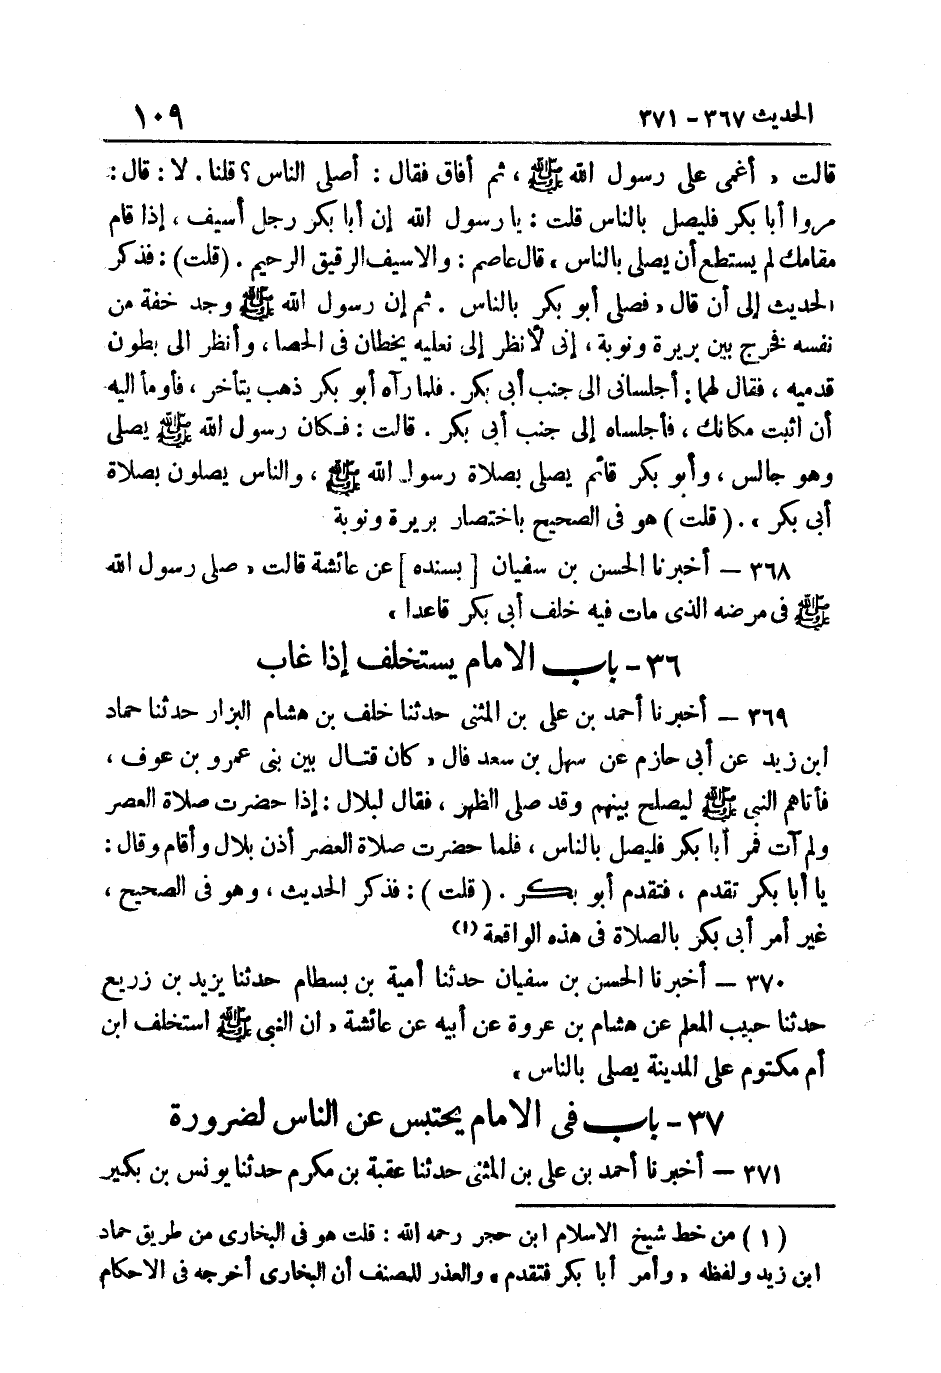 الحديث ٣٦٧ - ٣٧١ ١٠٩
قالت « أغمى على رسول الله ﷺ ، ثم أفاق فقال : أصلى الناس ؟ قلنا . لا : قال :
مروا أبا بكر فليصل بالناس قلت : يا رسول الله إن أبا بكر رجل أسيف ، إذا قام
مقامك لم يستطع أن يصلى بالناس » قال عاصم : والاسيف الرقيق الرحيم . (قلت) : فذكر
الحديث إلى أن قال « فصلى أبو بكر بالناس . ثم إن رسول الله ﷺ وجد خفة من
نفسه فخرج بين بريرة ونوبة ، إنى لأنظر إلى نعليه يخطان فى الحصا ، وأنظر الى بطون
قدميه ، فقال لهما : أجلسانى الى جنب أبى بكر . فلما رآه أبو بكر ذهب يتأخر ، فأومأ اليه
أن اثبت مكانك ، فأجلساه إلى جنب أبى بكر . قالت : فكان رسول الله ﷺ يصلى
وهو جالس ، وأبو بكر قائم يصلى بصلاة رسول الله ﷺ ، والناس يصلون بصلاة
أبى بكر » . ( قلت ) هو فى الصحيح باختصار بريرة ونوبة
٣٦٨ – أخبرنا الحسن بن سفيان [ بسنده ] عن عائشة قالت « صلى رسول الله
ﷺ فى مرضه الذى مات فيه خلف أبى بكر قاعدا »
٣٦ - باب الامام يستخلف إذا غاب
٣٦٩ – أخبرنا أحمد بن على بن المثنى حدثنا خلف بن هشام البزار حدثنا حماد
ابن زيد عن أبى حازم عن سهل بن سعد قال « كان قتال بين بنى عمرو بن عوف ،
فأتاهم النبى ﷺ ليصلح بينهم وقد صلى الظهر ، فقال لبلال : إذا حضرت صلاة العصر
ولم آت فمر أبا بكر فليصل بالناس ، فلما حضرت صلاة العصر أذن بلال وأقام وقال :
يا أبا بكر تقدم ، فتقدم أبو بكر . ( قلت ) : فذكر الحديث ، وهو فى الصحيح ،
غير أمر أبى بكر بالصلاة فى هذه الواقعة (١)
٣٧٠ – أخبرنا الحسن بن سفيان حدثنا أمية بن بسطام حدثنا يزيد بن زريع
حدثنا حبيب المعلم عن هشام بن عروة عن أبيه عن عائشة « ان النبى ﷺ استخلف ابن
أم مكتوم على المدينة يصلى بالناس »
٣٧ - باب فى الامام يحتبس عن الناس لضرورة
٣٧١ – أخبرنا أحمد بن على بن المثنى حدثنا عقبة بن مكرم حدثنا يونس بن بكير
( ١ ) من خط شيخ الاسلام ابن حجر رحمه الله : قلت هو فى البخارى من طريق حماد
ابن زيد ولفظه « وأمر أبا بكر فتقدم » والعذر للمصنف أن البخارى أخرجه فى الاحكام